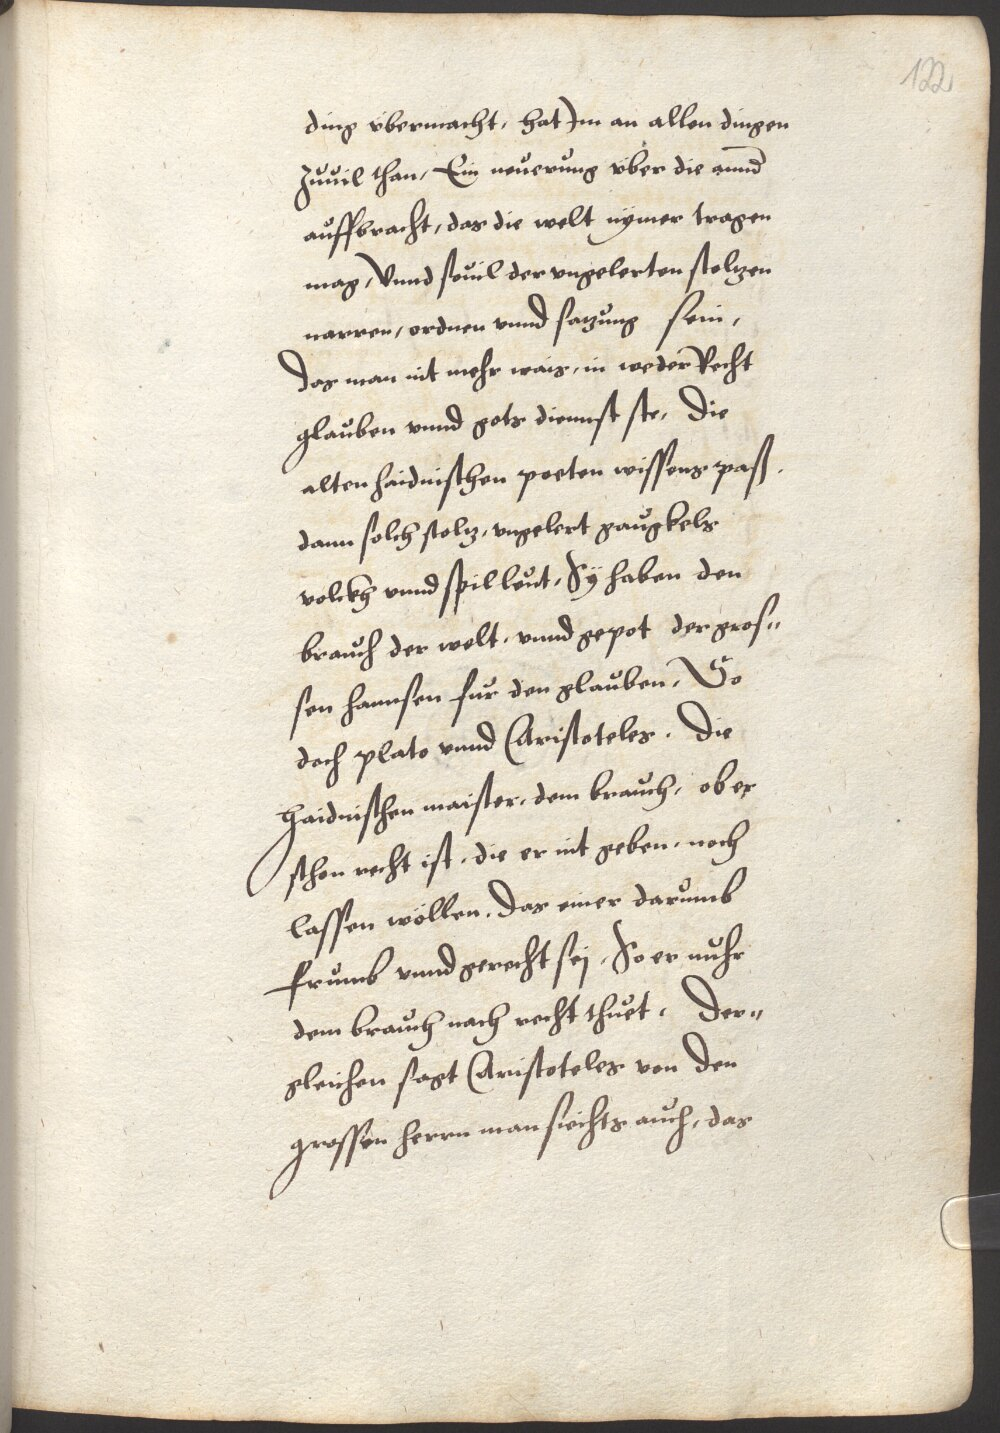 122
ding vbermacht, hat Jm an allen dingen
zuuil than, Ein neuerung vber die annd
auffbracht, das die welt nymer tragen
mag, Vnnd souil der vngelerten stoltzen
narren, ordnen vnnd satzung sein,
das man nit mehr wais, in weder Recht
glauben vnnd gots diennst ste, Die
alten haidnischen poeten wissens paß.
dann solch stoltz, vngelert gaugkels
volckh vnnd spilleut, Sy haben den
brauch der welt, vnnd gepot der gros„
sen hannsen fur den glauben, So
doch plato vnnd Aristoteles. Die
haidnischen maister, dem brauch, ob er
schon recht ist, die er nit geben, noch
lassen wöllen. Das einer darumb
frumb vnnd gerecht sej, So er nuhr
dem brauch nach recht thuet. Der„
gleichen sagt Aristoteles von den
grossen herrn man siechts auch, das